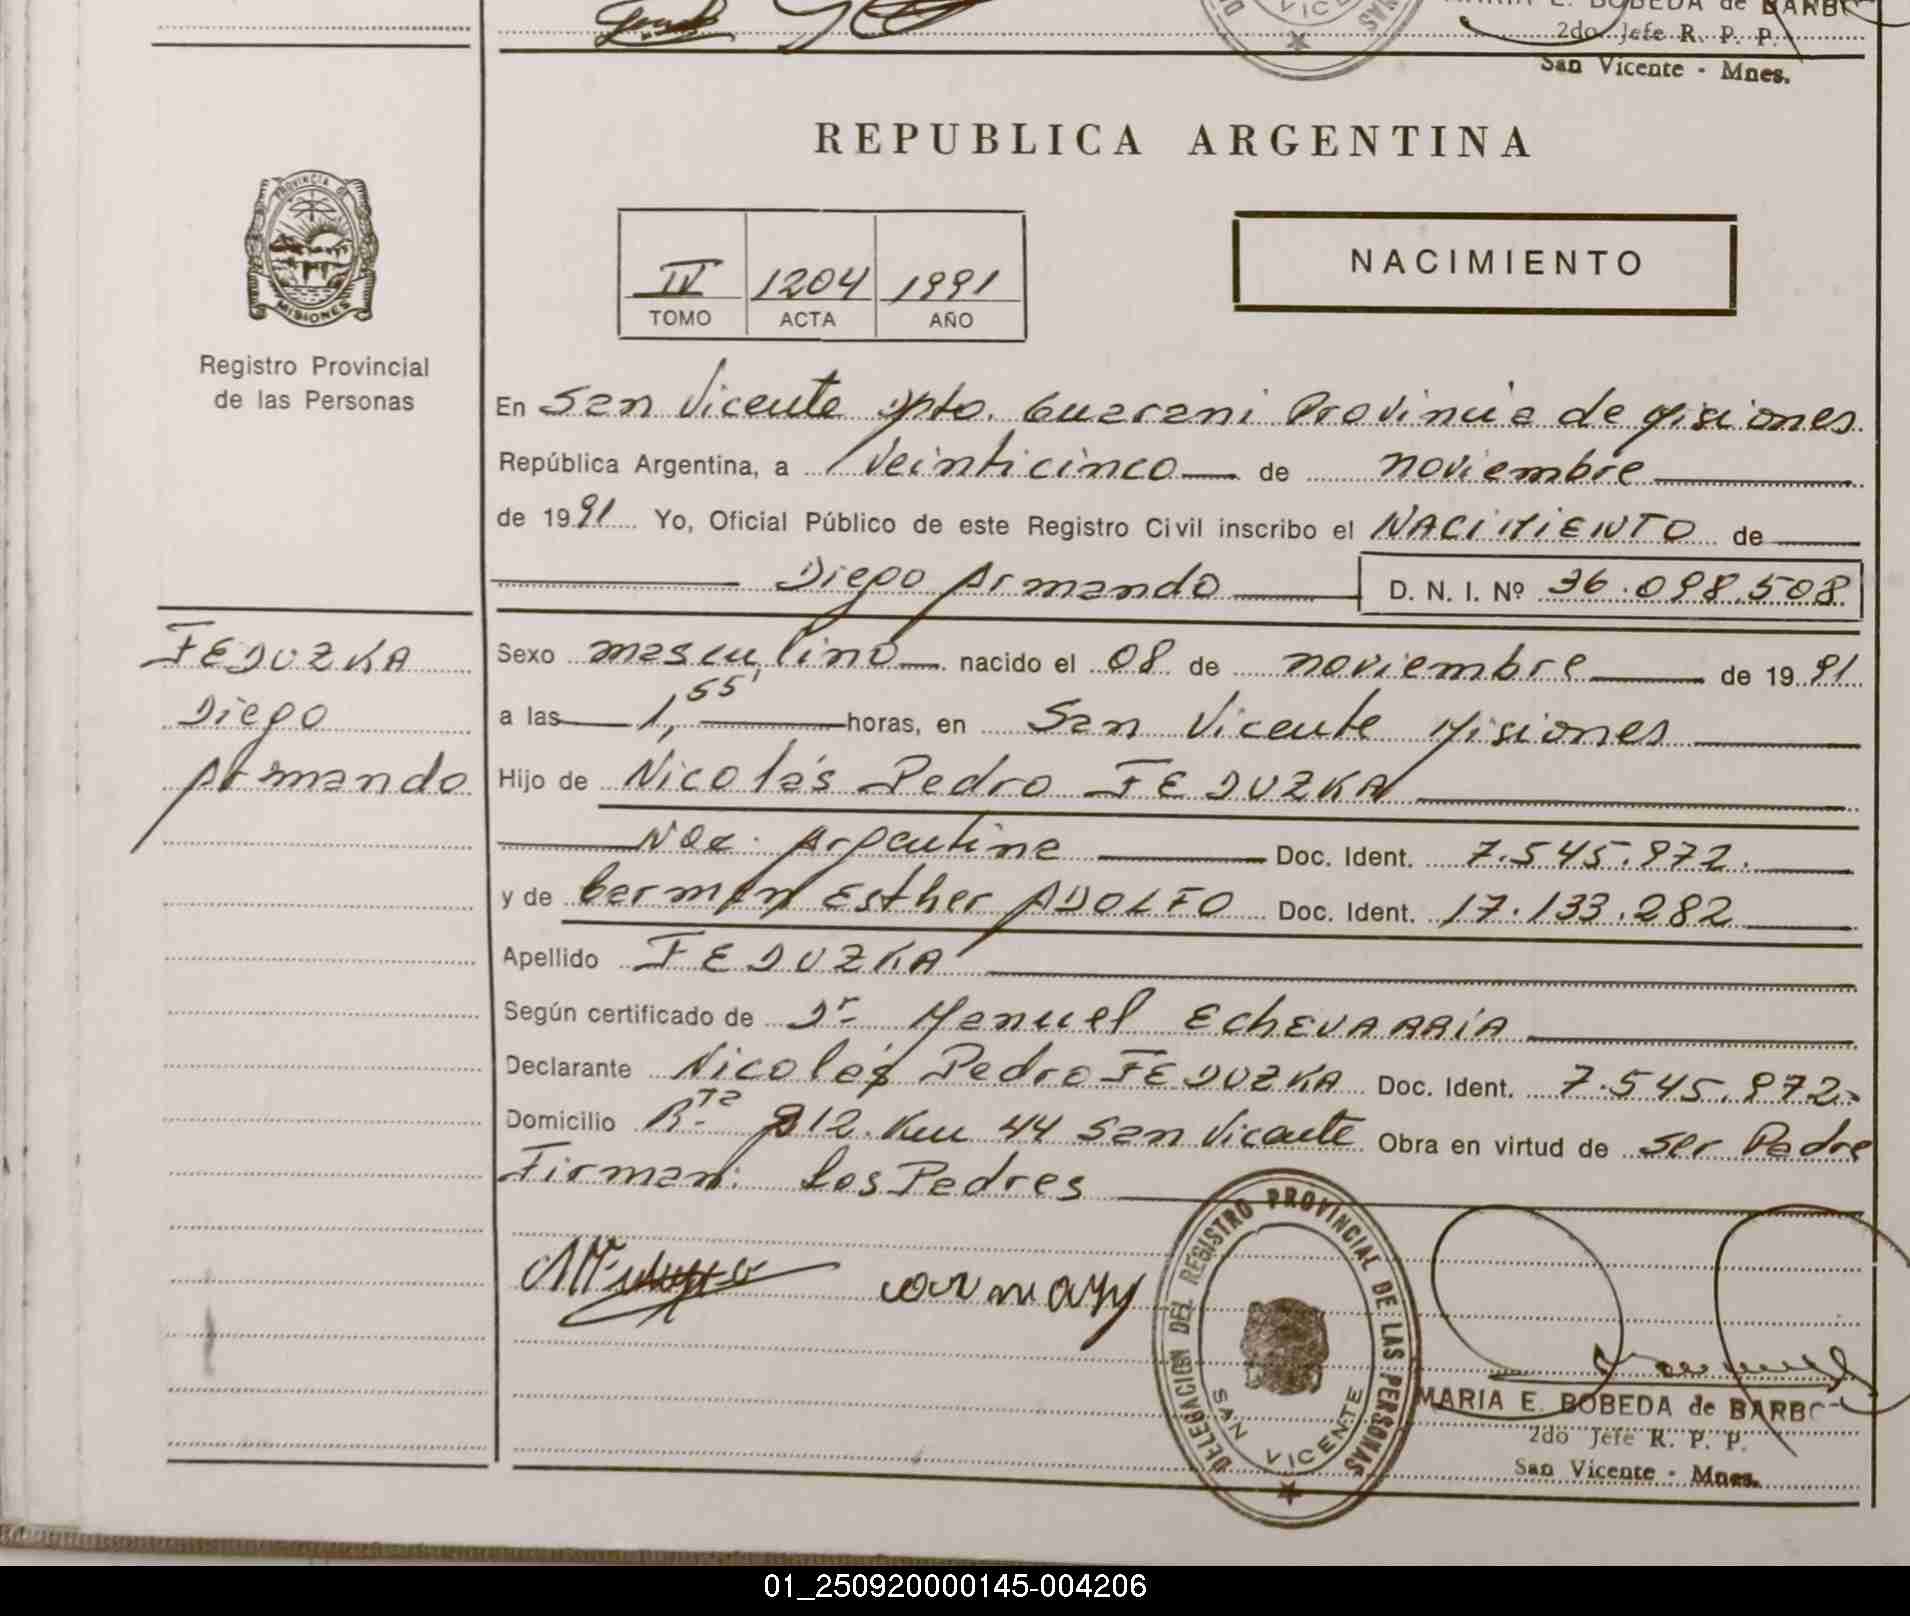 MARIA E. BOBEDA de BARBO
2do. Jefe R. P. P.
San Vicente - Mnes.
REPUBLICA ARGENTINA
PROVINCIA DE
MISIONES
Registro Provincial
de las Personas
IV 1204 1991
TOMO ACTA AÑO
NACIMIENTO
En San Vicente Dpto. Guarani Provincia de Misiones
República Argentina, a veinticinco de noviembre
de 1991 Yo, Oficial Público de este Registro Civil inscribo el NACIMIENTO de
Diego Armando D. N. I. Nº 36.098.508
FEDUZKA
Diego
Armando
Sexo masculino nacido el 08 de noviembre de 1991
a las 1,55' horas, en San Vicente Misiones
Hijo de Nicolás Pedro FEDUZKA
Nac. Argentina Doc. Ident. 7.545.972.
y de Germán Esther ADOLFO Doc. Ident. 17.133.282
Apellido FEDUZKA
Según certificado de Dr. Manuel EchEVARRÍA
Declarante Nicolás Pedro FEDUZKA Doc. Ident. 7.545.972.
Domicilio R.ta 212 Km 44 San Vicente Obra en virtud de ser Padre
Firman: los Padres
DELEGACION DEL REGISTRO PROVINCIAL DE LAS PERSONAS
SAN VICENTE
MARIA E. BOBEDA de BARBO
2do Jefe R. P. P.
San Vicente - Mnes.
01_250920000145-004206